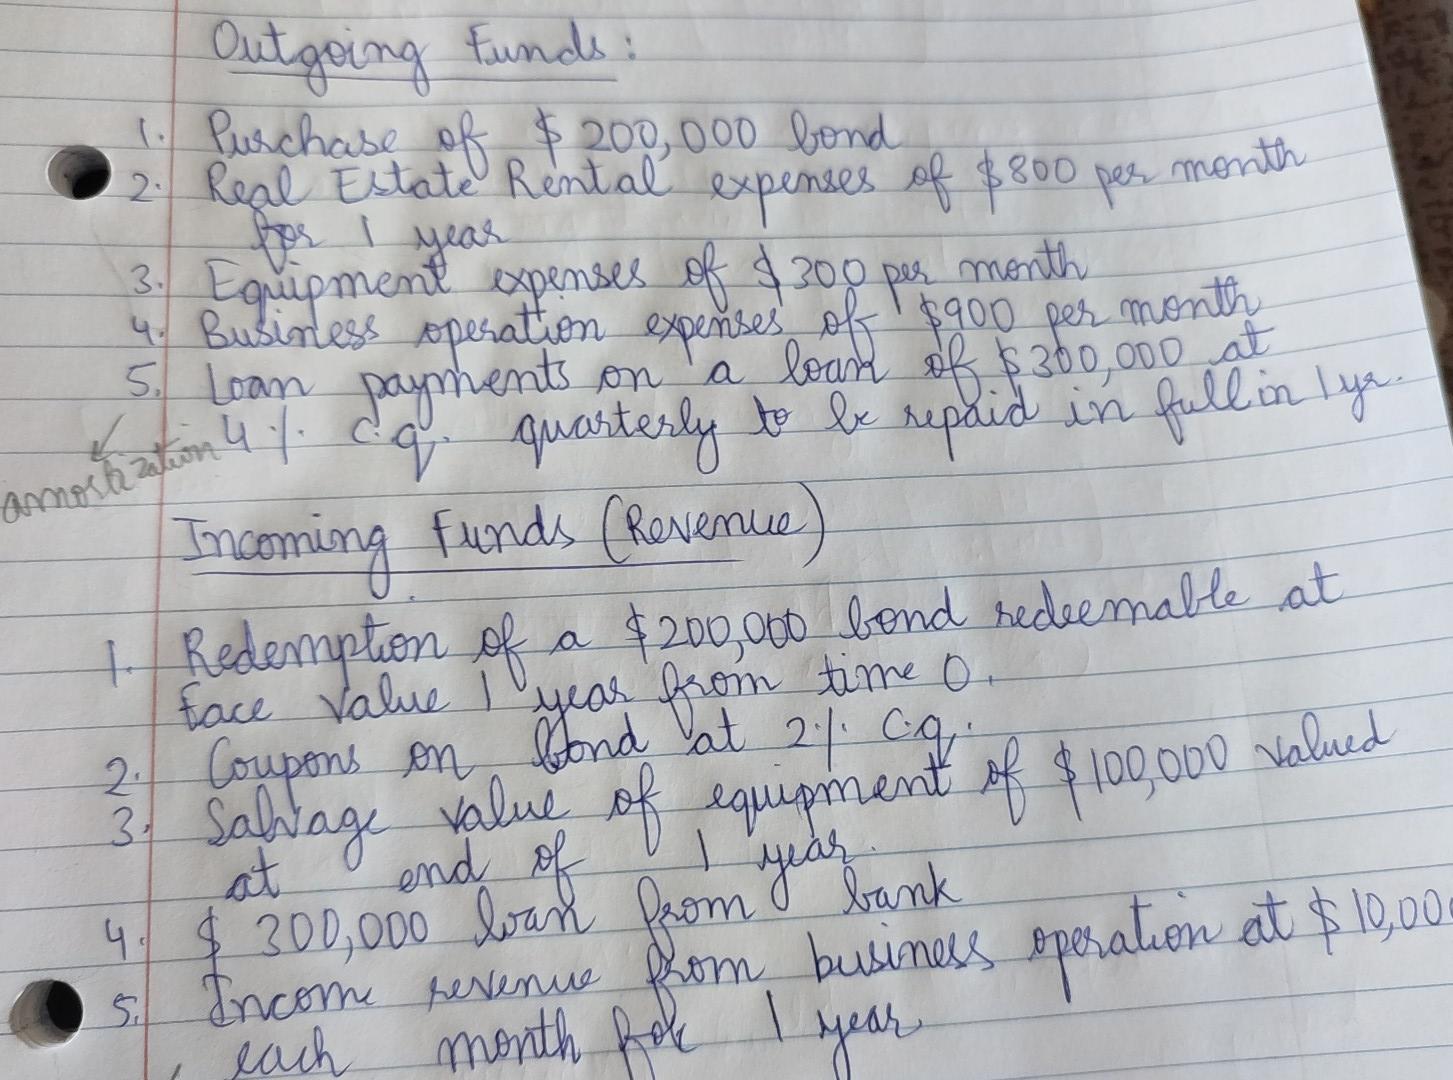 Outgoing Funds:
1. Purchase of $200,000 bond
2. Real Estate Rental expenses of $800 per month
for 1 year
3. Equipment expenses of $300 per month
4. Business operation expenses of $900 per month
5. Loan payments on a loan of $300,000 at
4% c.q. quarterly to be repaid in full in 1 yr.
amortization
Incoming Funds (Revenue)
1. Redemption of a $200,000 bond redeemable at
face value 1 year from time 0.
2. Coupons on bond at 2% c.q.
3. Salvage value of equipment of $100,000 valued
at end of 1 year.
4. $300,000 loan from bank
5. Income revenue from business operation at $10,00
each month for 1 year